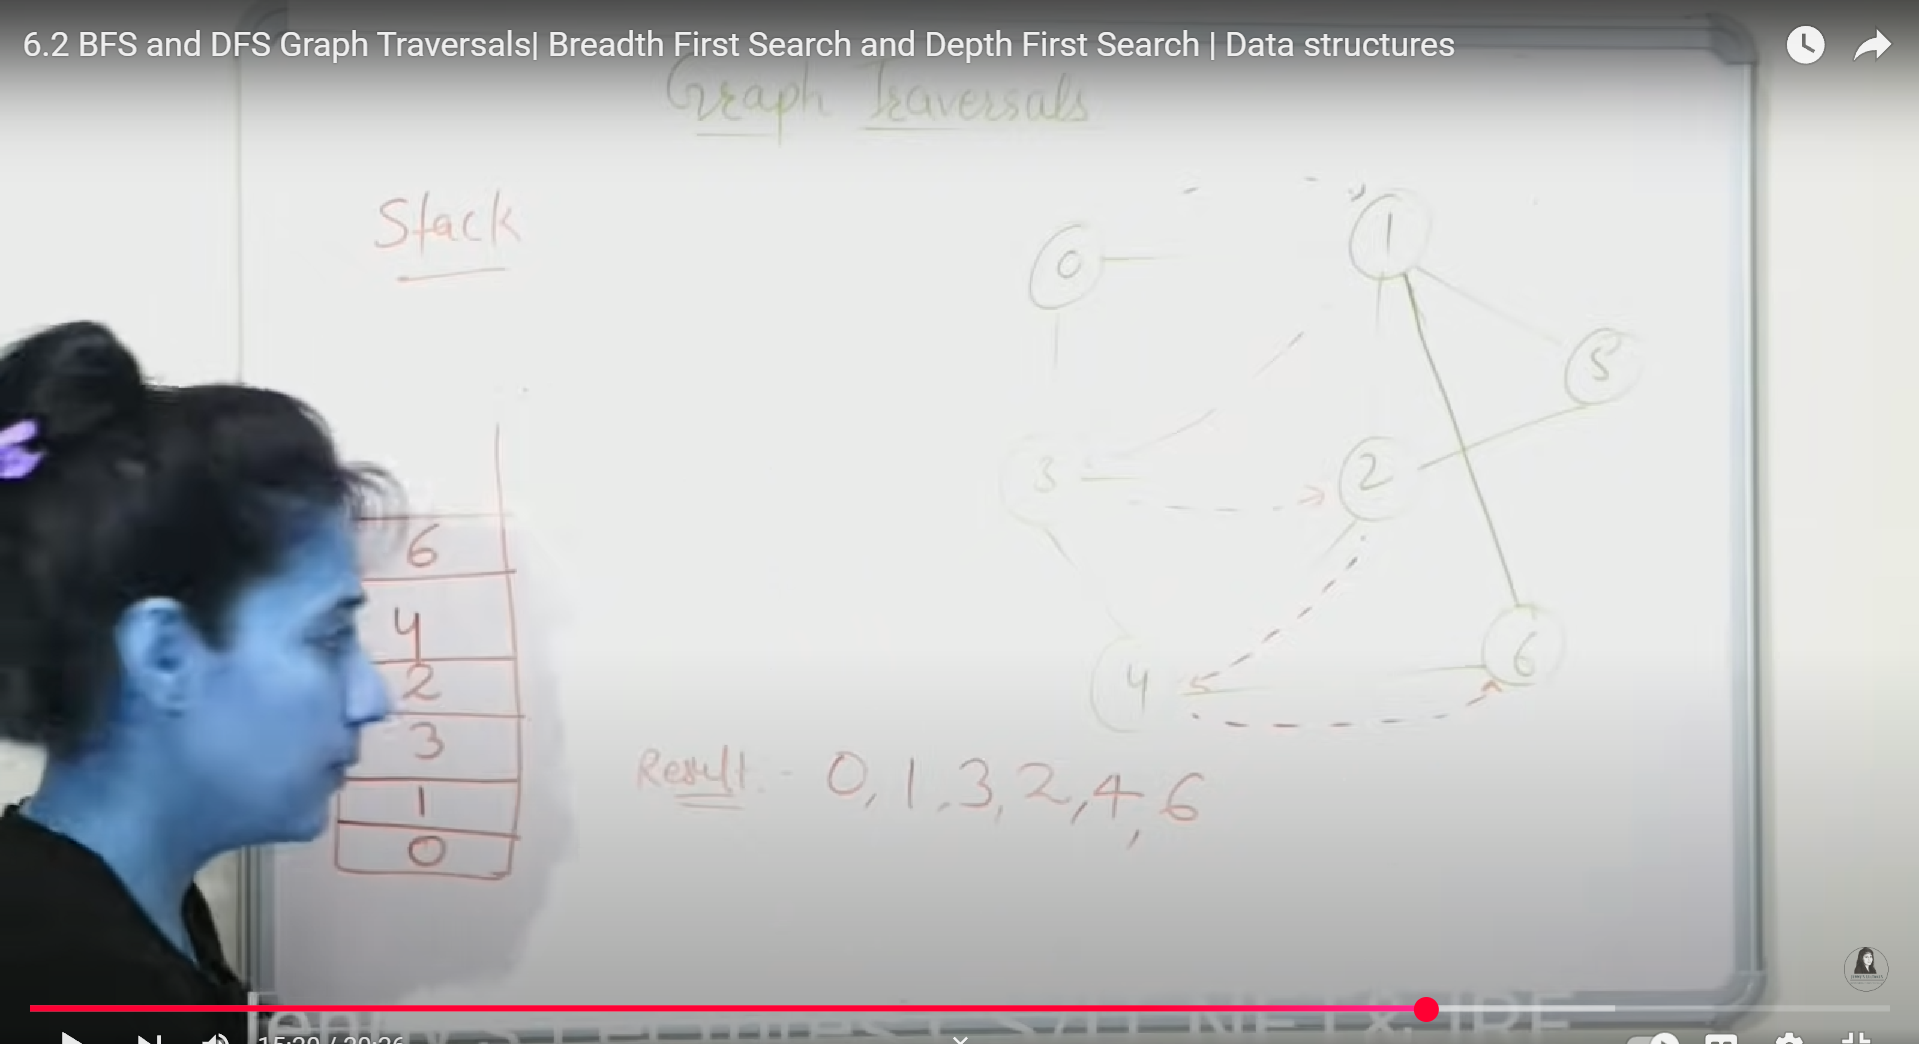 6.2 BFS and DFS Graph Traversals| Breadth First Search and Depth First Search | Data structures
Graph Traversals
Stack
0
1
5
3
2
4
6
6
4
2
3
1
0
Result:- 0, 1, 3, 2, 4, 6